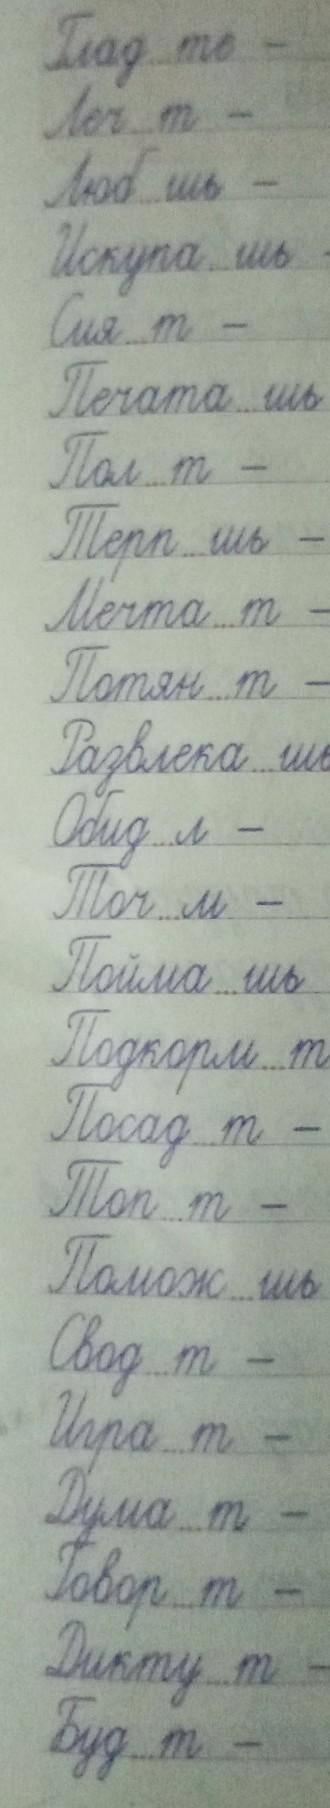 Глад...ть -
Леч...т -
Люб...шь -
Искупа...шь -
Сия...т -
Печата...шь
Пол...т -
Терп...шь -
Мечта...т -
Потян...т -
Развлека...шь
Обид...л -
Точ...м -
Пойма...шь
Подкорм...т
Посад...т -
Топ...т -
Помож...шь
Свод...т -
Игра...т -
Дума...т -
Говор...т -
Дикту...т -
Буд...т -